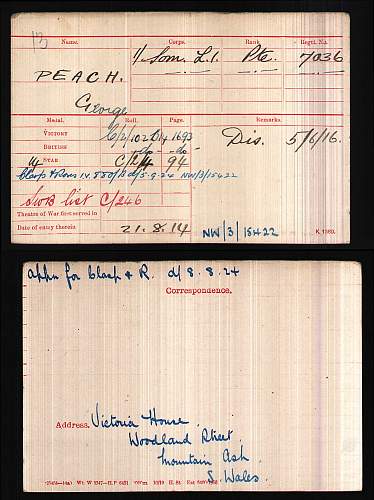 13
Name. Corps. Rank Regtl. No.
1/Som. L.I. Pte. 7036
PEACH.
George
Medal. Roll. Page. Remarks.
VICTORY 1693 Dis. 5/6/16.
BRITISH -do- -do-
14 STAR C/2/4 94
Clasp & Roses d/5.9.24 NW/3/15422
SWB list C/246
Theatre of War first served in
Date of entry therein 21.8.14 NW/3/15422
K. 1380.
Appn for Clasp & R. d/8.8.24
Correspondence.
Address. Victoria House
Woodland Street,
Mountain Ash.
S. Wales.